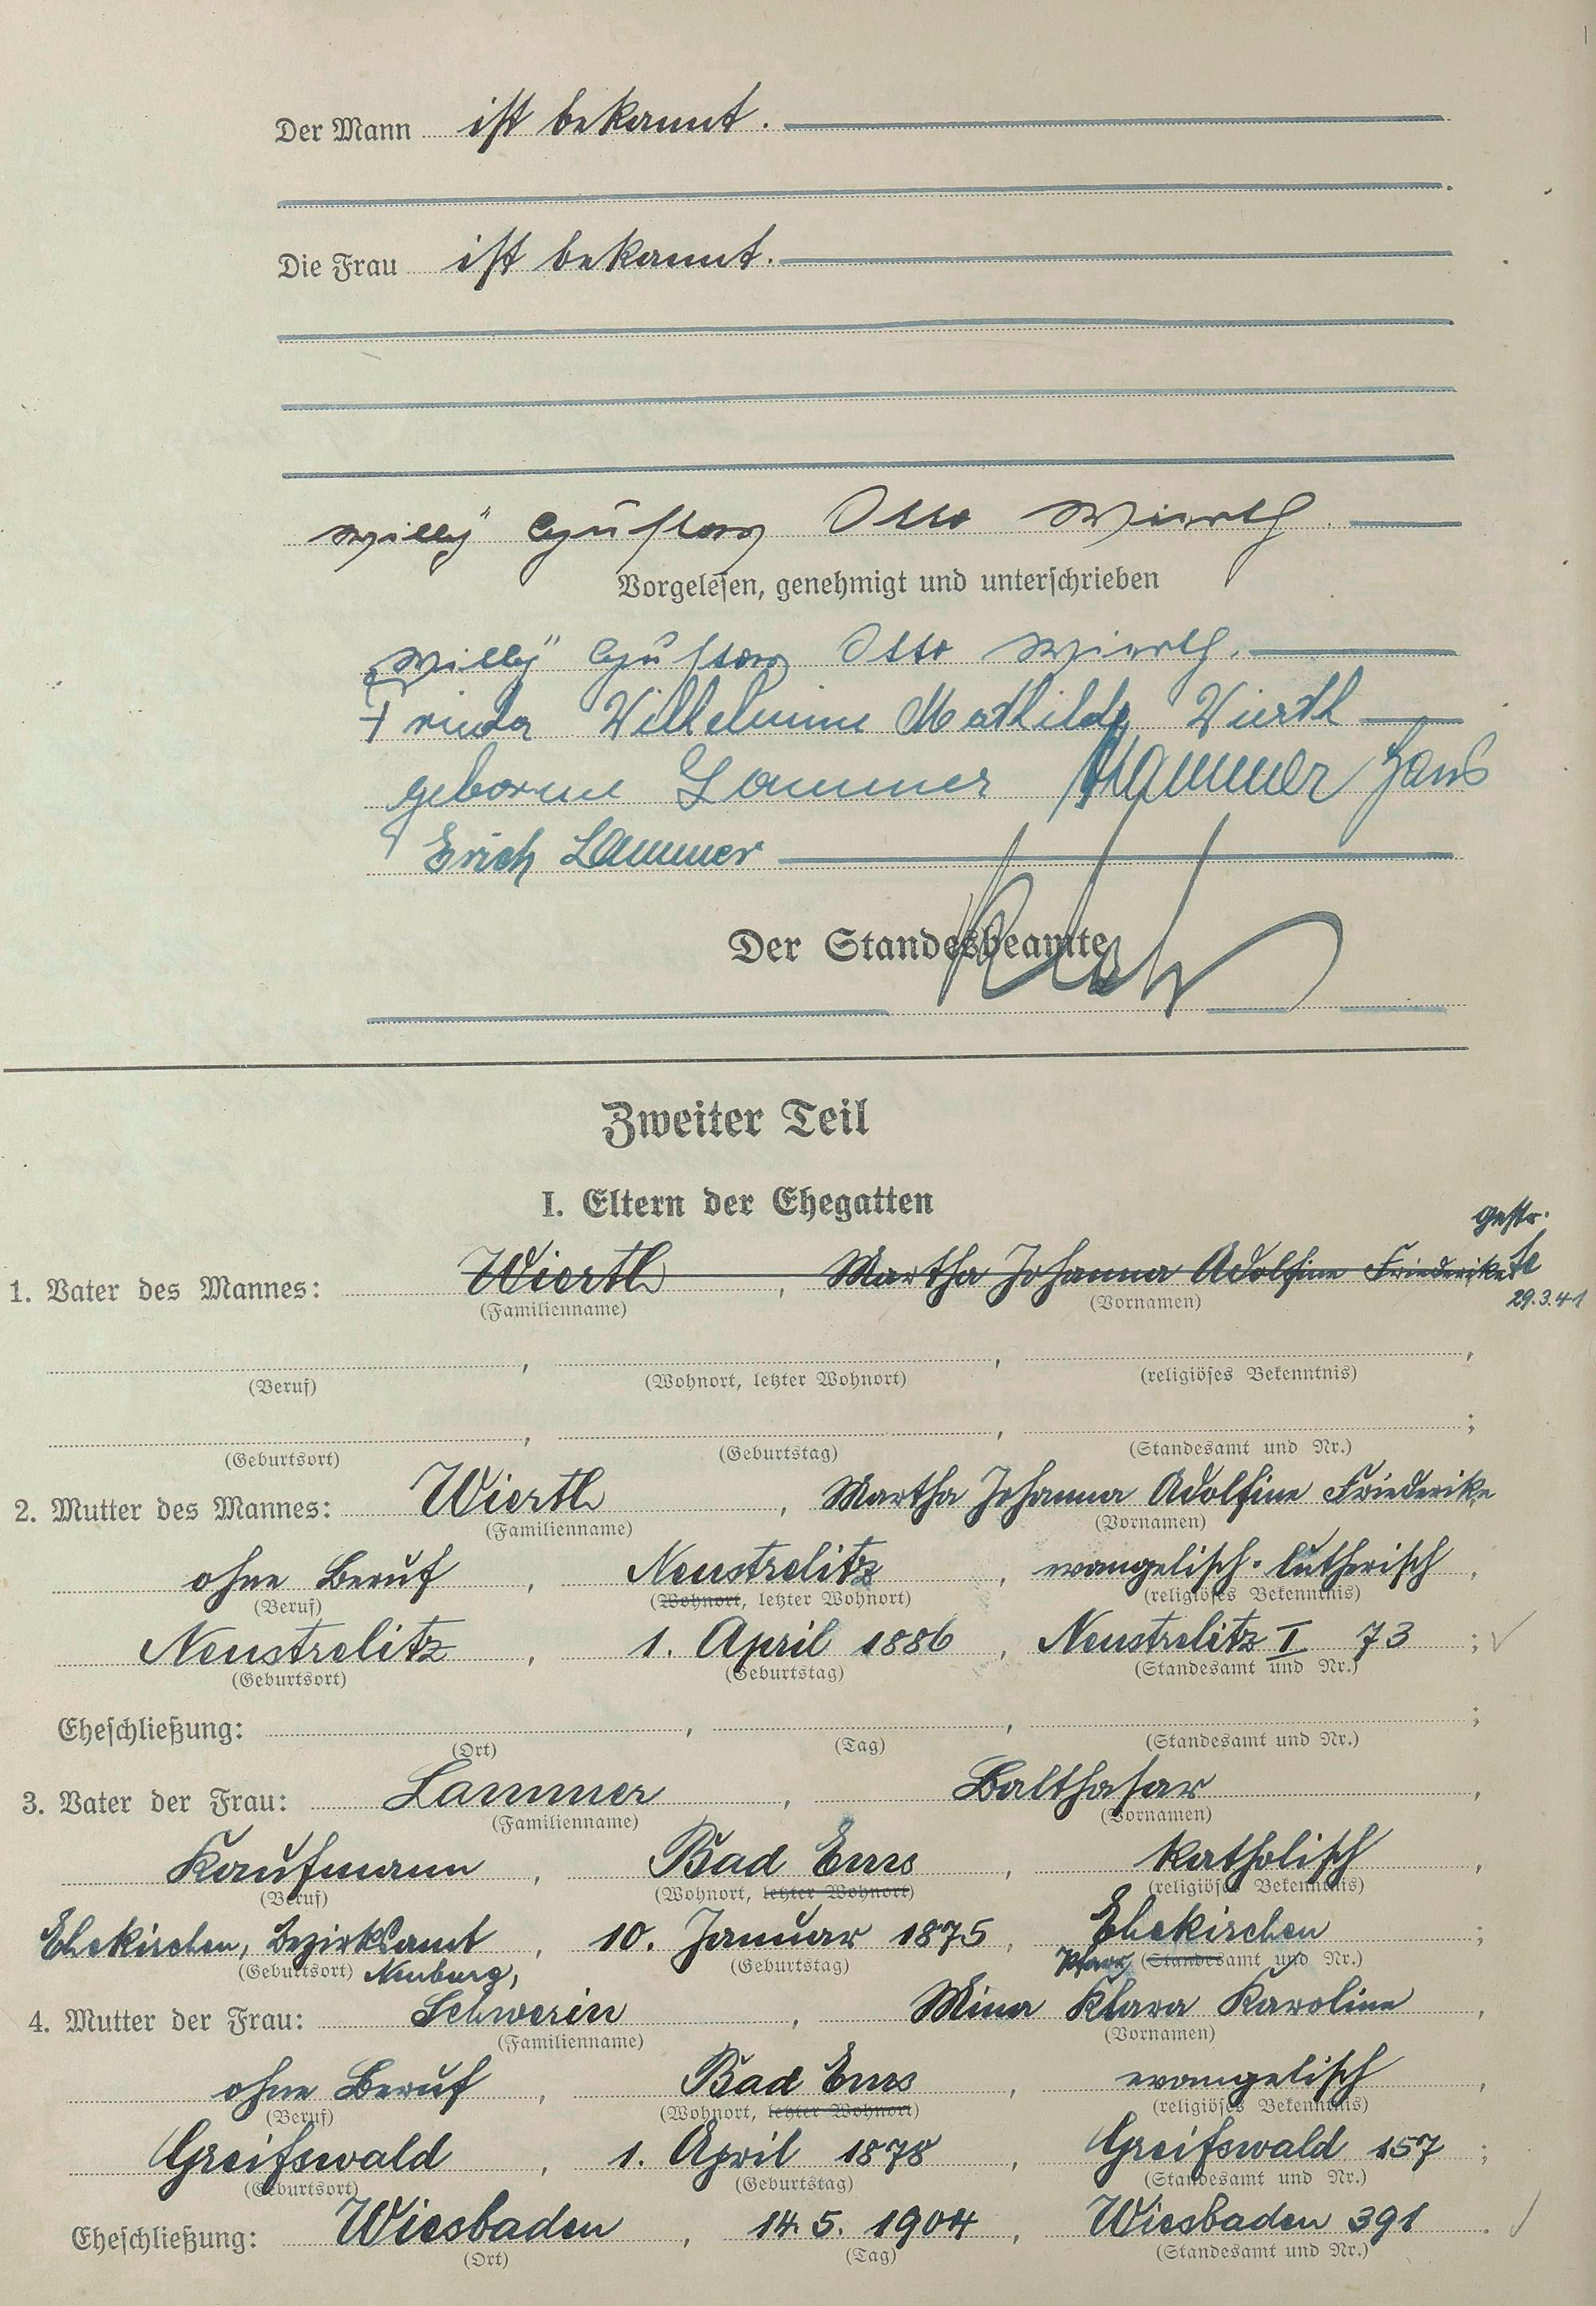 Der Mann ist bekannt.
Die Frau ist bekannt.
Willy Gustav Otto Wierth
Vorgelesen, genehmigt und unterschrieben
Willy Gustav Otto Wierth.
Frieda Wilhelmine Mathilde Wierth
geborene Lammer Hans
Erich Lammer
Der Standesbeamte
Zweiter Teil
I. Eltern der Ehegatten
gestr.
1. Vater des Mannes: Wierth, Martha Johanna Adolfine Friederike
(Familienname) (Vornamen) 29.3.41
, , ,
(Beruf) (Wohnort, letzter Wohnort) (religiöses Bekenntnis)
, , ;
(Geburtsort) (Geburtstag) (Standesamt und Nr.)
2. Mutter des Mannes: Wierth, Martha Johanna Adolfine Friederike
(Familienname) (Vornamen)
ohne Beruf, Neustrelitz, evangelisch-lutherisch,
(Beruf) (Wohnort, letzter Wohnort) (religiöses Bekenntnis)
Neustrelitz, 1. April 1886, Neustrelitz I 73;
(Geburtsort) (Geburtstag) (Standesamt und Nr.)
Eheschließung: , , ;
(Ort) (Tag) (Standesamt und Nr.)
3. Vater der Frau: Lammer, Balthasar,
(Familienname) (Vornamen)
Kaufmann, Bad Ems, katholisch,
(Beruf) (Wohnort, letzter Wohnort) (religiöses Bekenntnis)
Ehekirchen, Bezirksamt, 10. Januar 1875, Ehekirchen;
(Geburtsort) Neuburg, (Geburtstag) Pfarr (Standesamt und Nr.)
4. Mutter der Frau: Schwerin, Mina Klara Karoline,
(Familienname) (Vornamen)
ohne Beruf, Bad Ems, evangelisch,
(Beruf) (Wohnort, letzter Wohnort) (religiöses Bekenntnis)
Greifswald, 1. April 1878, Greifswald 157;
(Geburtsort) (Geburtstag) (Standesamt und Nr.)
Eheschließung: Wiesbaden, 14.5.1904, Wiesbaden 391.
(Ort) (Tag) (Standesamt und Nr.)